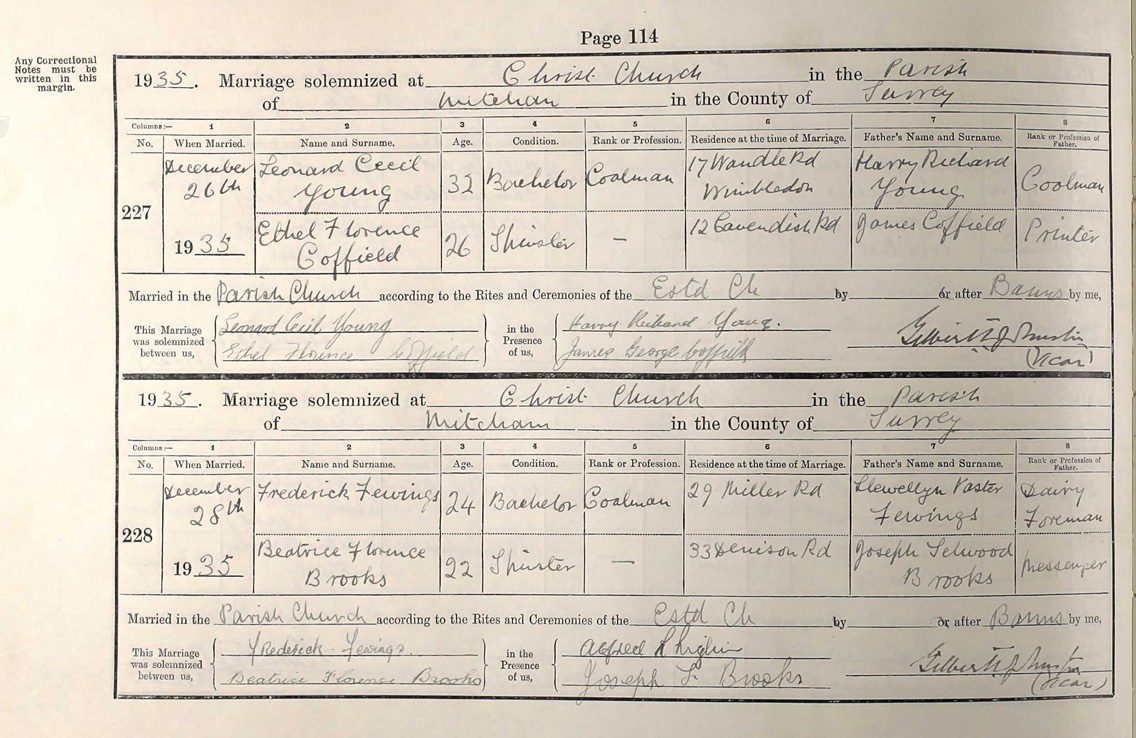 Page 114
Any Correctional
Notes must be
written in this
margin.
1935. Marriage solemnized at Christ Church in the Parish
of Mitcham in the County of Surrey
Columns:— 1 2 3 4 5 6 7 8
No. When Married. Name and Surname. Age. Condition. Rank or Profession. Residence at the time of Marriage. Father's Name and Surname. Rank or Profession of Father.
227 December 26th 1935 Leonard Cecil Young 32 Bachelor Coalman 17 Wandle Rd Wimbledon Harry Richard Young Coalman
Ethel Florence Coffield 26 Spinster — 12 Cavendish Rd James Coffield Printer
Married in the Parish Church according to the Rites and Ceremonies of the Estd Ch by or after Banns by me,
This Marriage was solemnized between us, Leonard Cecil Young in the Presence of us, Harry Richard Young.
Ethel Florence Coffield James George Coffield
(Vicar)
1935. Marriage solemnized at Christ Church in the Parish
of Mitcham in the County of Surrey
Columns:— 1 2 3 4 5 6 7 8
No. When Married. Name and Surname. Age. Condition. Rank or Profession. Residence at the time of Marriage. Father's Name and Surname. Rank or Profession of Father.
228 December 28th 1935 Frederick Fewings 24 Bachelor Coalman 29 Miller Rd Llewellyn Fewings Dairy Foreman
Beatrice Florence Brooks 22 Spinster — 33 Denison Rd Joseph Selwood Brooks Messenger
Married in the Parish Church according to the Rites and Ceremonies of the Estd Ch by or after Banns by me,
This Marriage was solemnized between us, Frederick Fewings. in the Presence of us, Alfred
Beatrice Florence Brooks Joseph Brooks
(Vicar)